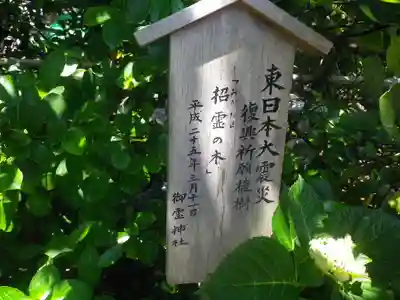 東日本大震災
復興祈願植樹
招霊の木」
平成二十五年三月十一日
御霊神社